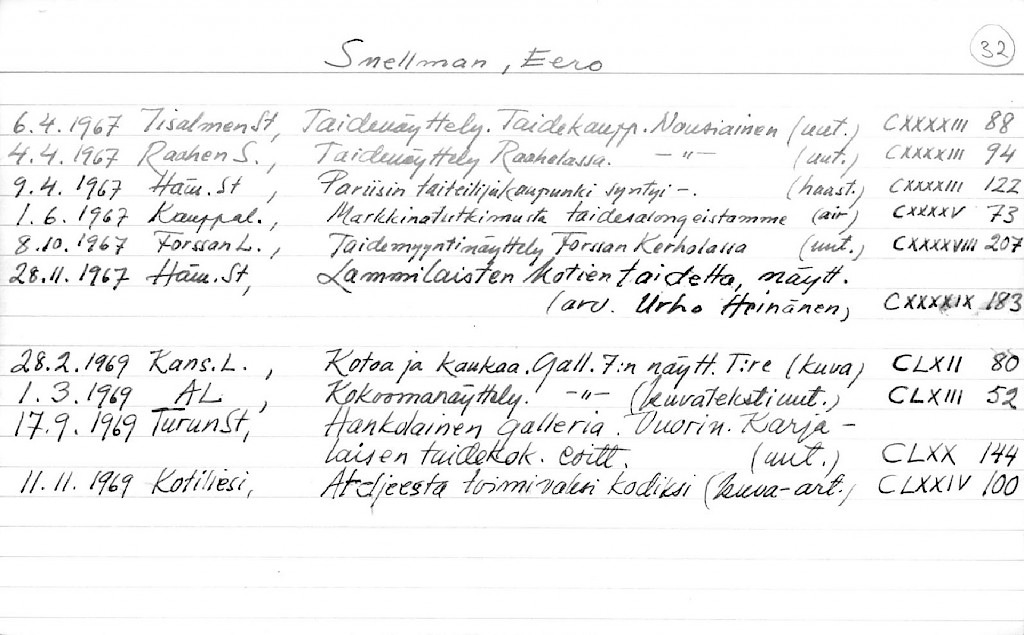 32
Snellman, Eero
6.4.1967 Iisalmen St, Taidenäyttely. Taidekaupp. Nousiainen (uut.) CXXXXIII 88
4.4.1967 Raahen S., Taidenäyttely Raaholassa. -"- (uut.) CXXXXIII 94
9.4.1967 Häm. St, Pariisin taiteilijakaupunki syntyi -. (haast.) CXXXXIII 122
1.6.1967 Kauppal., Markkinatutkimusta taidesalongeistamme (air) CXXXXV 73
8.10.1967 Forssan L., Taidemyyntinäyttely Forssan Kerholassa (uut.) CXXXXVIII 207
28.11.1967 Häm. St, Lammilaisten kotien taidetta, näytt.
(arv. Urho Heinänen) CXXXXIX 183
28.2.1969 Kans. L., Kotoa ja kaukaa. Gall. 7:n näytt. T:re (kuva) CLXII 80
1.3.1969 AL, Kokoomanäyttely. -"- (kuvateksti uut.) CLXIII 52
17.9.1969 Turun St, Hankolainen galleria. Vuorin. Karja-
laisen taidekok. esitt. (uut.) CLXX 144
11.11.1969 Kotiliesi, Ateljeesta toimivaksi kodiksi (kuva-art.) CLXXIV 100